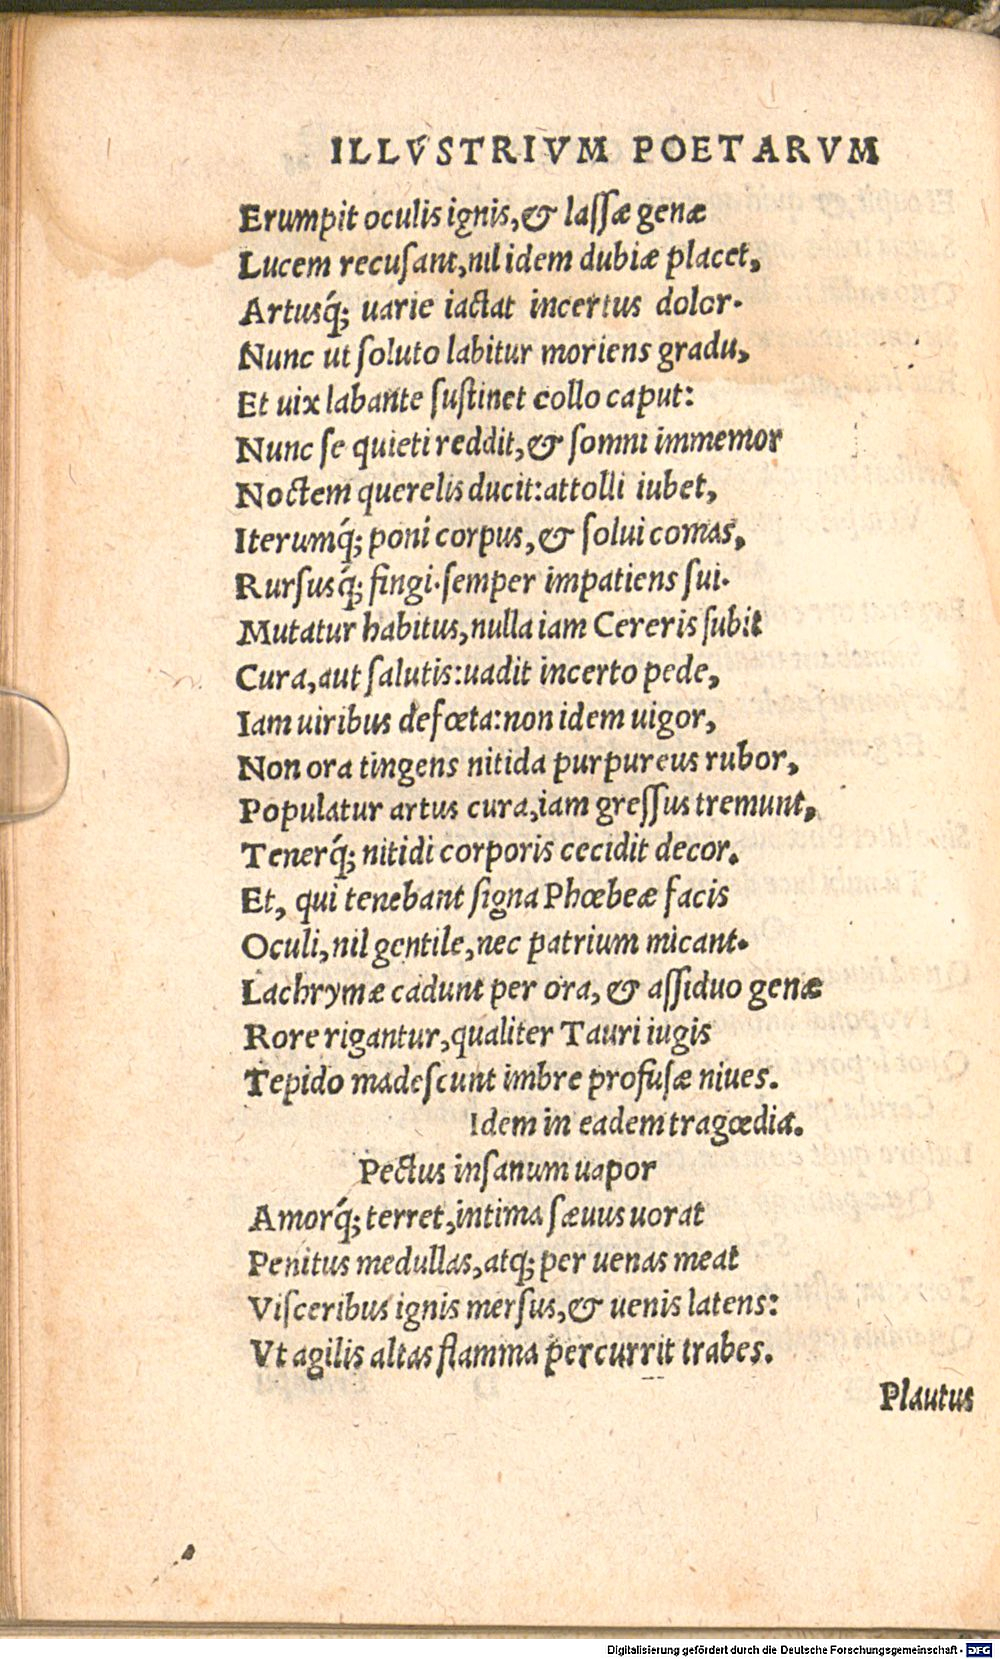 ILLVSTRIVM POETARVM
Erumpit oculis ignis,& laſſæ genæ
Lucem recuſant,nil idem dubiæ placet,
Artusq́; uarie iactat incertus dolor.
Nunc ut ſoluto labitur moriens gradu,
Et uix labante ſuſtinet collo caput:
Nunc ſe quieti reddit,& ſomni immemor
Noctem querelis ducit:attolli iubet,
Iterumq́; poni corpus,& ſolui comas,
Rurſusq́; fingi.ſemper impatiens ſui.
Mutatur habitus,nulla iam Cereris ſubit
Cura,aut ſalutis:uadit incerto pede,
Iam uiribus defœta:non idem uigor,
Non ora tingens nitida purpureus rubor,
Populatur artus cura,iam greſſus tremunt,
Tenerq́; nitidi corporis cecidit decor.
Et, qui tenebant ſigna Phœbeæ facis
Oculi,nil gentile,nec patrium micant.
Lachrymæ cadunt per ora, & aſſiduo genæ
Rore rigantur,qualiter Tauri iugis
Tepido madeſcunt imbre profuſæ niues.
Idem in eadem tragœdia.
Pectus inſanum uapor
Amorq́; terret,intima ſæuus uorat
Penitus medullas,atq; per uenas meat
Viſceribus ignis merſus,& uenis latens:
Vt agilis altas flamma percurrit trabes.
Plautus
Digitalisierung gefördert durch die Deutsche Forschungsgemeinschaft - DFG